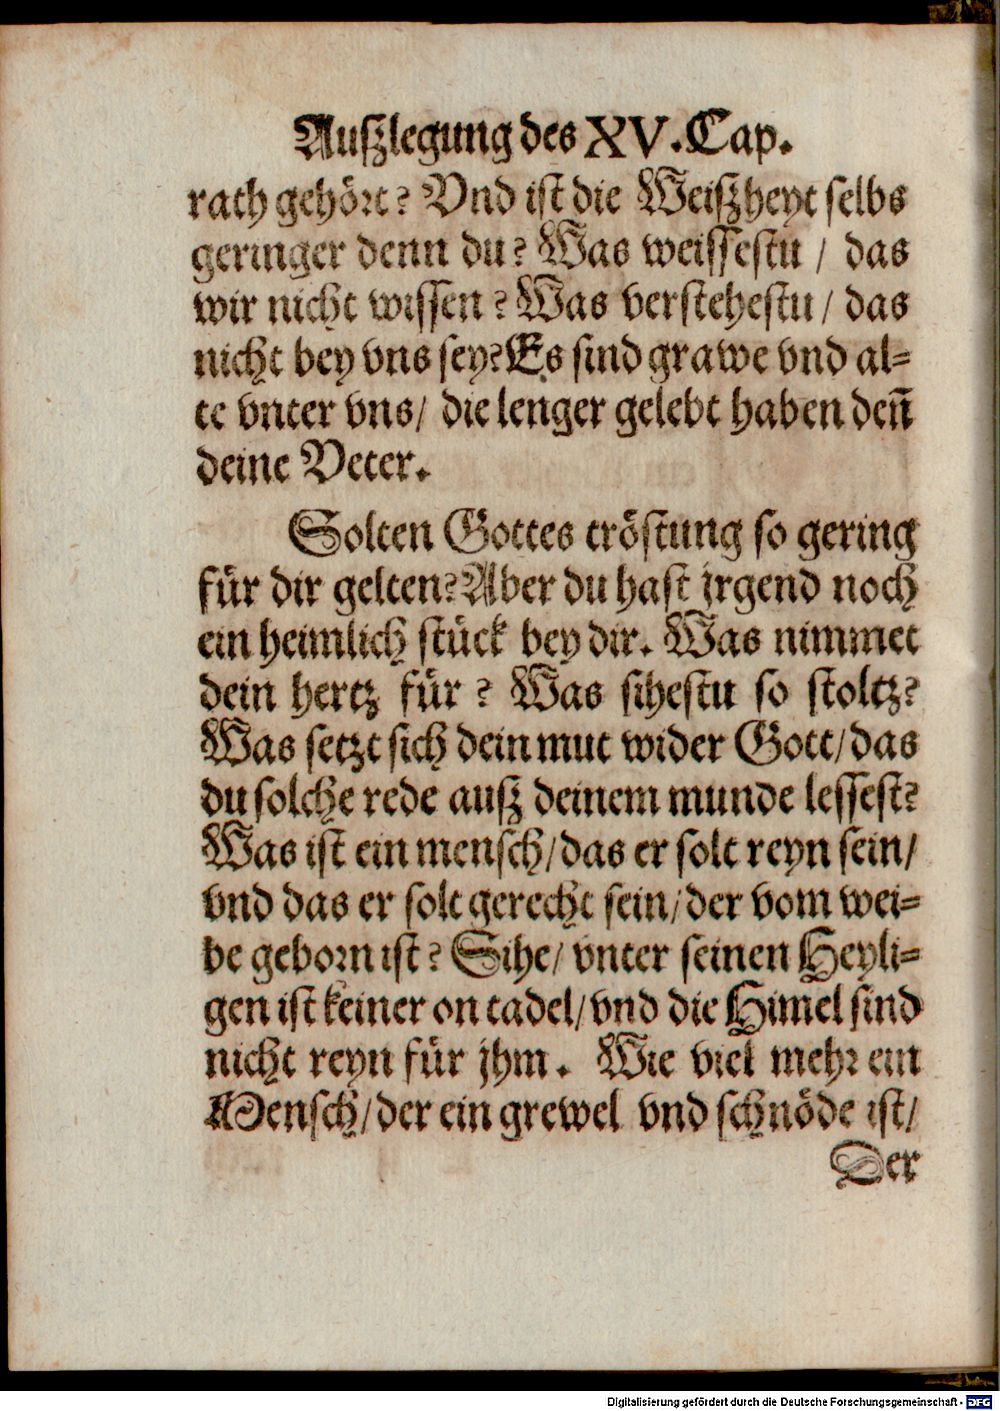 Außlegung des XV. Cap.
rath gehört? Vnd ist die Weißheyt selbs
geringer denn du? Was weissestu / das
wir nicht wissen? Was verstehestu / das
nicht bey vns sey? Es sind grawe vnd al=
te vnter vns / die lenger gelebt haben den̄
deine Veter.
Solten Gottes tröstung so gering
für dir gelten? Aber du hast jrgend noch
ein heimlich stück bey dir. Was nimmet
dein hertz für? Was sihestu so stoltz?
Was setzt sich dein mut wider Gott / das
du solche rede auß deinem munde lessest?
Was ist ein mensch / das er solt reyn sein /
vnd das er solt gerecht sein / der vom wei=
be geborn ist? Sihe / vnter seinen Heyli=
gen ist keiner on tadel / vnd die Himel sind
nicht reyn für jhm. Wie viel mehr ein
Mensch / der ein grewel vnd schnöde ist /
Der
Digitalisierung gefördert durch die Deutsche Forschungsgemeinschaft - DFG